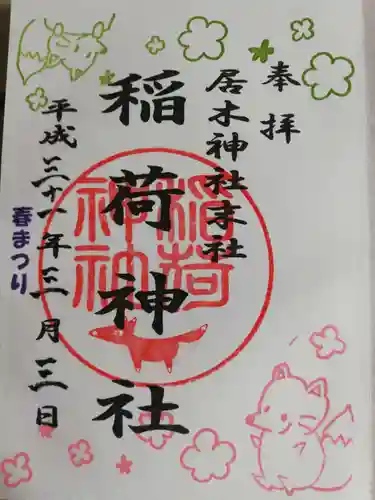 奉拝
居木神社末社
稲荷神社
稲荷神社
平成三十一年三月三日
春まつり